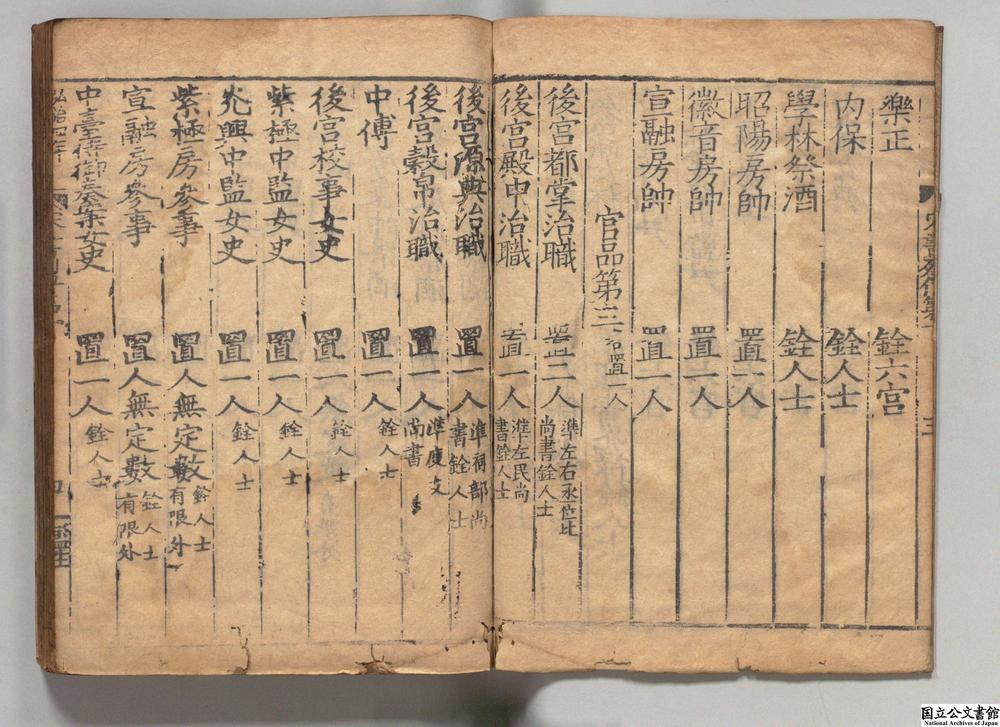 樂正 銓六宮
内保 銓人士
學林祭酒 銓人士
昭陽房帥 置一人
徽音房帥 置一人
宣融房帥 置一人
官品第三 各置一人
後宮都掌治職 置二人 準左右丞位比尚書銓人士
後宮殿中治職 置一人 準左民尚書銓人士
後宮源典治職 置一人 準祠部尚書銓人士
後宮穀帛治職 置一人 準度支尚書
中傅 置一人 銓人士
後宮校事女史 置一人 銓人士
紫極中監女史 置一人 銓人士
光興中監女史 置一人 銓人士
紫極房參事 置人無定數 銓人士有限外
宣融房參事 置人無定數 銓人士有限外
中臺侍御奏案女史 置一人 銓人士
国立公文書館
National Archives of Japan